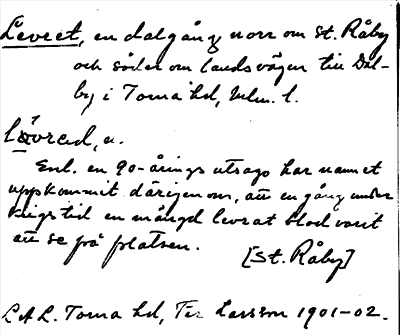 Levret, en dalgång norr om St. Råby
och söder om landsvägen till Dal-
by i Torna hd, Mlm. l.
lǻvrad, n.
Enl. en 90-årings utsago har namnet
uppkommit därigenom, att en gång under
krigstid en mängd levrat blod varit
att se på platsen.
[St. Råby]
LAL. Torna hd, Ter Larsson 1901-02.